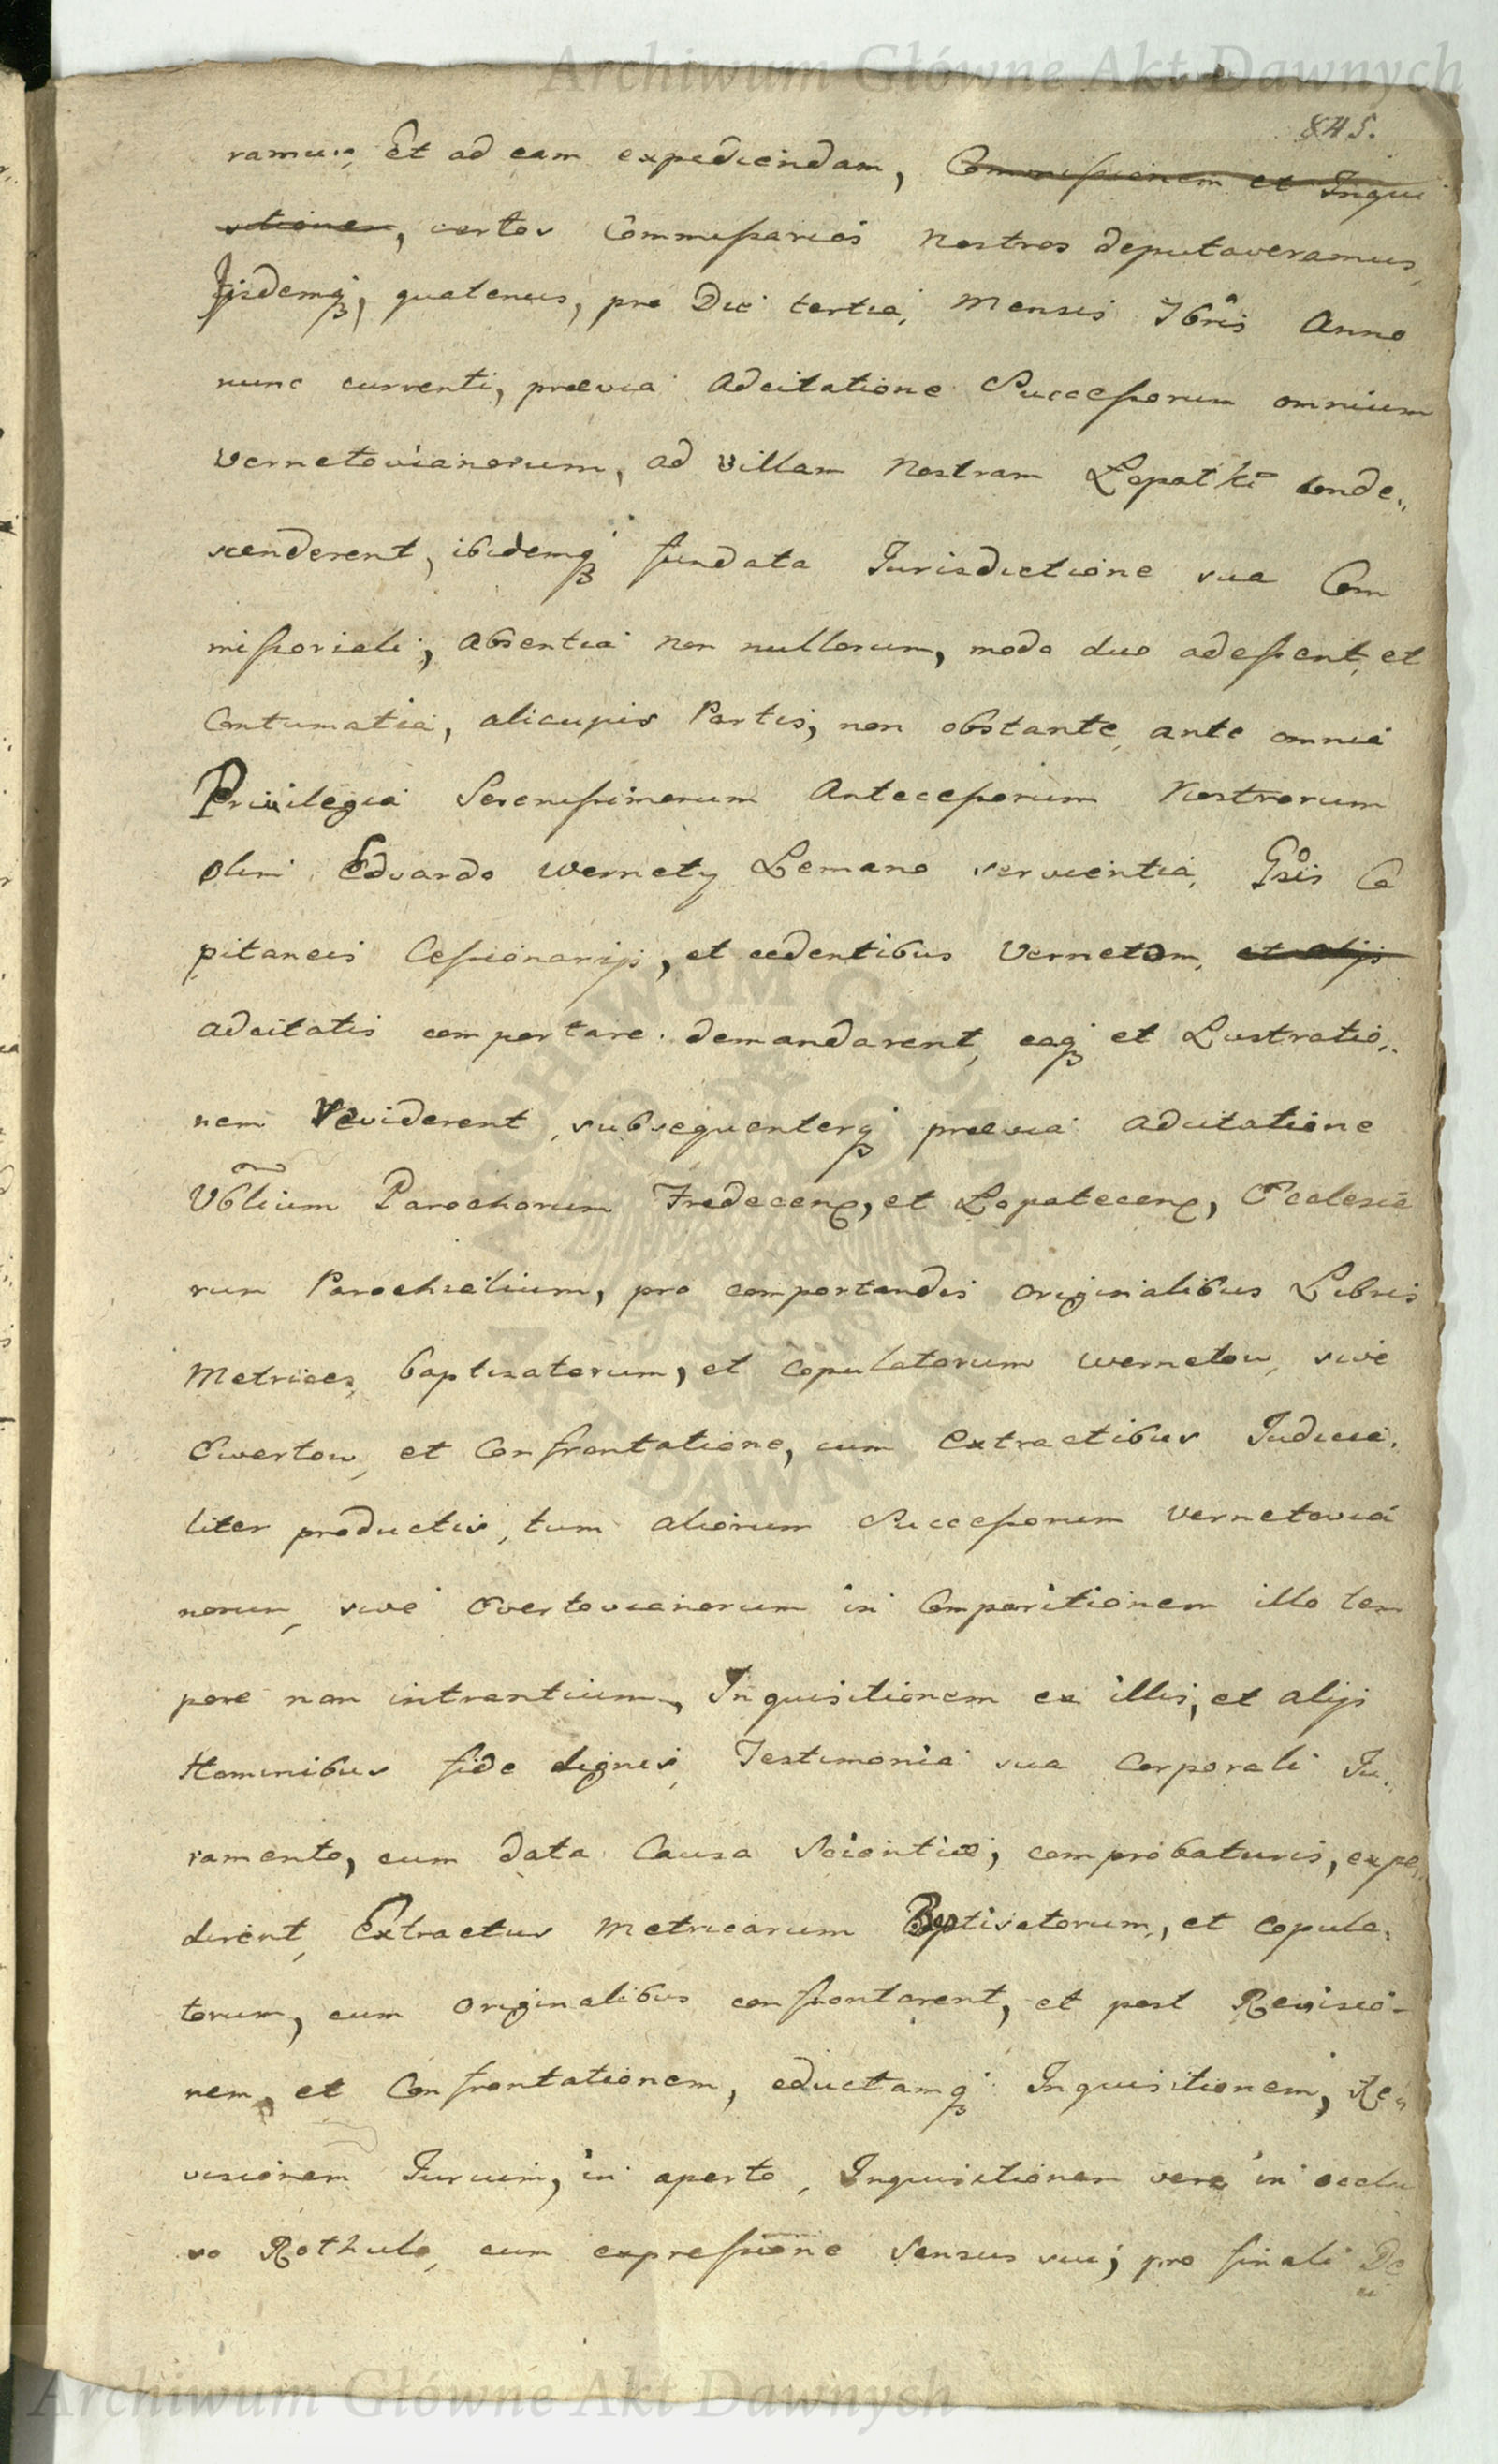 Archiwum Główne Akt Dawnych
845.
ramus, Et ad eam expediendam, Commissionem et Inqui
sitionem, certos Commissarios Nostros deputaveramus,
Iisdemq, quatenus, pro Die tertia, Mensis 7bris Anno
nunc currenti, prævia Adcitatione Successorum omnium
Vernetovianorum, ad Villam Nostram Lopatki conde„
scenderent, ibidemq fundata Jurisdictione sua Com
missoriali, absentia non nullorum, modo duo adessent, et
Contumatia, alicujus Partis, non obstante, ante omnia
Privilegia Serenissimorum Antecessorum Nostrorum
olim Edvardo Wernety Lemano servientia, Gsis Ca
pitaneis Cessionarijs, et cedentibus Vernetom, et alijs
adcitatis comportare demandarent, eaq et Lustratio„
nem reviderent, subsequenterq prævia adcitatione
Vblium Parochorum Fredecen, et Lopatecen, Ecclesia
rum Parochialium, pro comportandis originalibus Libris
Metrices, baptisatorum, et copulatorum Wernetow, sive
Ewertow, et Confrontatione, cum Extractibus Judicia„
liter productis, tum aliorum Successorum Vernetovia
norum, sive Evertovianorum in Comparitionem illo tem
pore non intrantium, Inquisitionem ex illis, et alijs
Hominibus fide dignis, Testimonia sua Corporali Ju„
ramento, cum data Causa Scientiæ, comprobaturis, expe„
dirent, Extractus Metricarum Baptisatorum, et copula„
torum, cum originalibus confrontarent, et post Revisio-
nem, et Confrontationem, eductamq Inquisitionem, Re„
visionem Jurium, in aperto, Inquisitionem vero in occlu
so Rothulo, cum expressione Sensus sui, pro finali De
Archiwum Główne Akt Dawnych